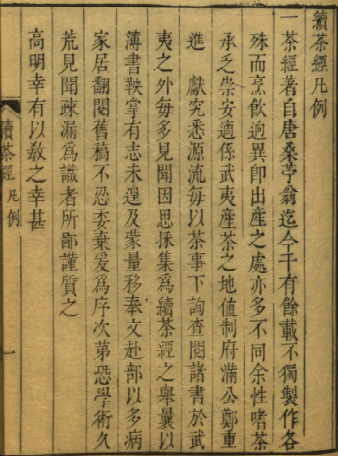 續茶經凡例
一茶經著自唐桑苧翁迄今千有餘載不獨製作各
殊而烹飲迥異即出產之處亦多不同余性嗜茶
承乏崇安適係武夷產茶之地值制府滿公鄭重
進獻究悉源流每以茶事下詢查閱諸書於武
夷之外每多見聞因思採集為續茶經之舉曩以
簿書鞅掌有志未遑及蒙量移奉文赴部以多病
家居翻閱舊稿不忍委棄爰為序次第恐學術久
荒見聞疎漏為識者所鄙謹質之
高明幸有以教之幸甚
續茶經 凡例 一